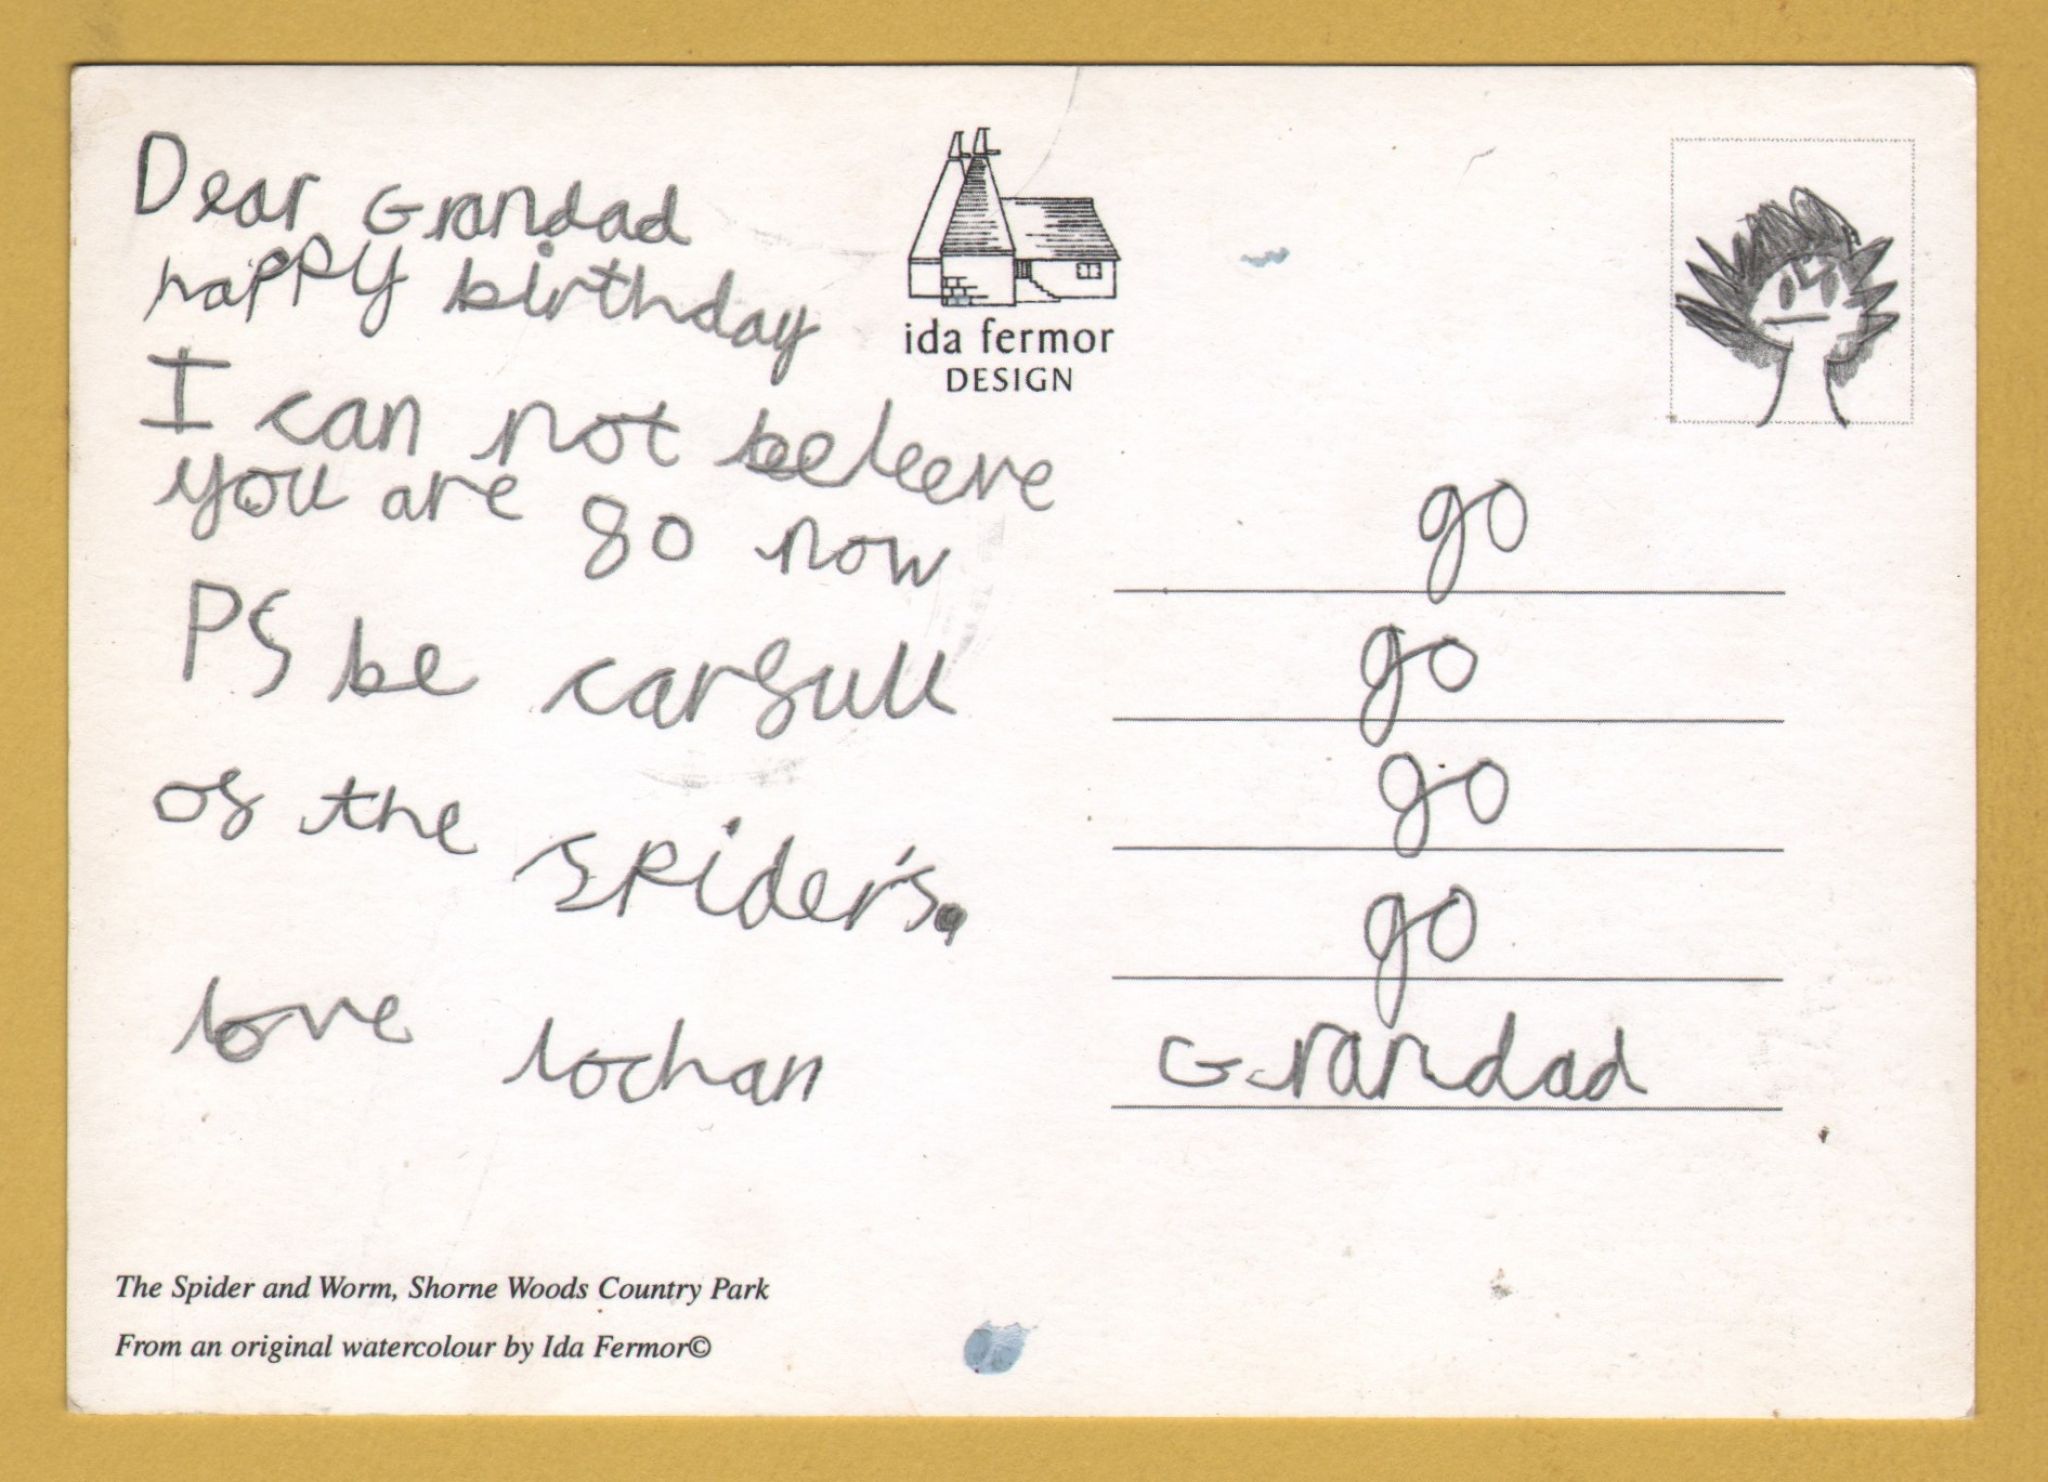 Dear Grandad
happy birthday
I can not beleeve
you are 80 now
PS be carfull
of the spider's.
love lochan
ida fermor
DESIGN
go
go
go
go
Grandad
The Spider and Worm, Shorne Woods Country Park
From an original watercolour by Ida Fermor©